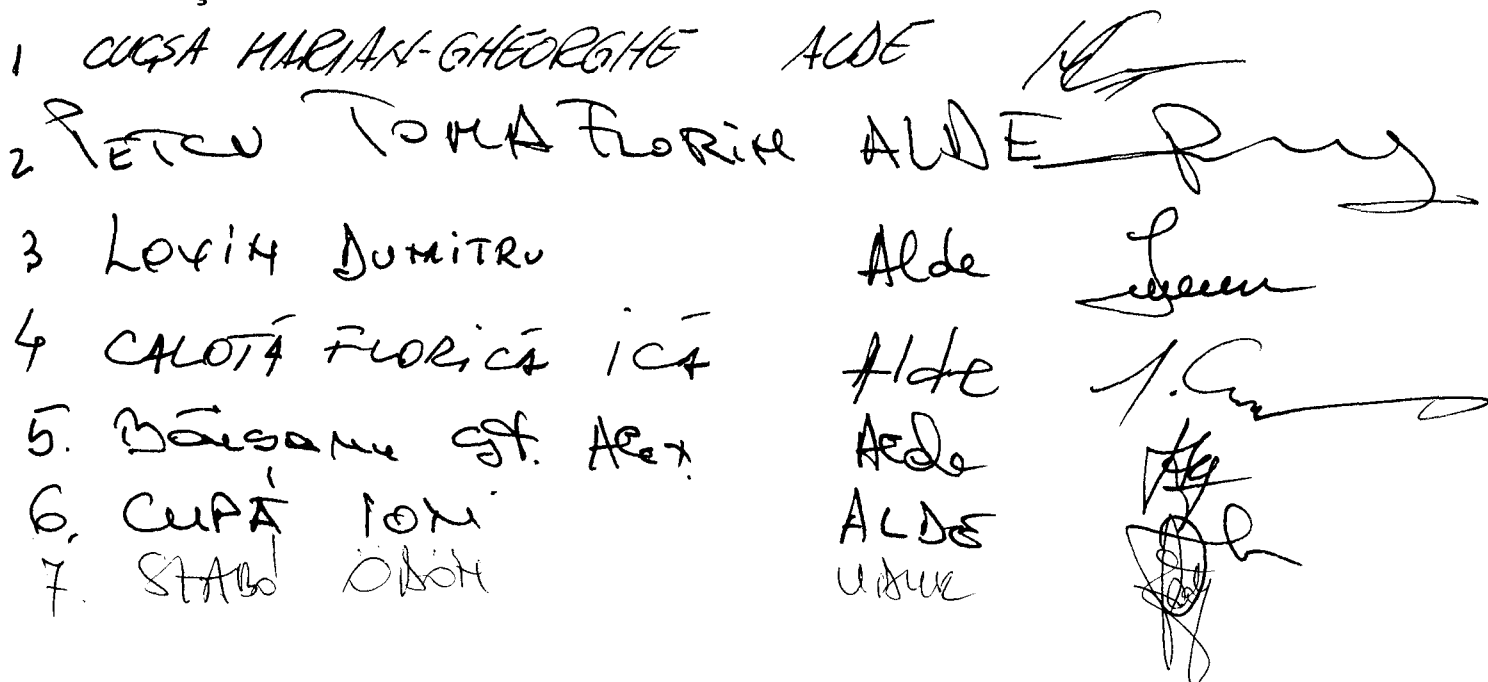 1 CUCȘA MARIAN-GHEORGHE ALDE
2 PETCU TOMA FLORIN ALDE
3 LOVIN DUMITRU Alde
4 CALOTĂ FLORICĂ ICĂ Alde
5. Bâgsanu Șt. Alex Alde
6. CUPĂ ION ALDE
7. SZABÓ ÖDÖN UDMR